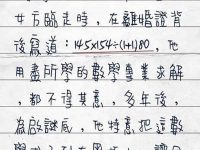 女方臨走時，在離婚證背
後寫道：145x154÷(1+1)80，他
用盡所學的數學專業求解
，都不得其意，多年後，
為啟謎底，他特意把這數